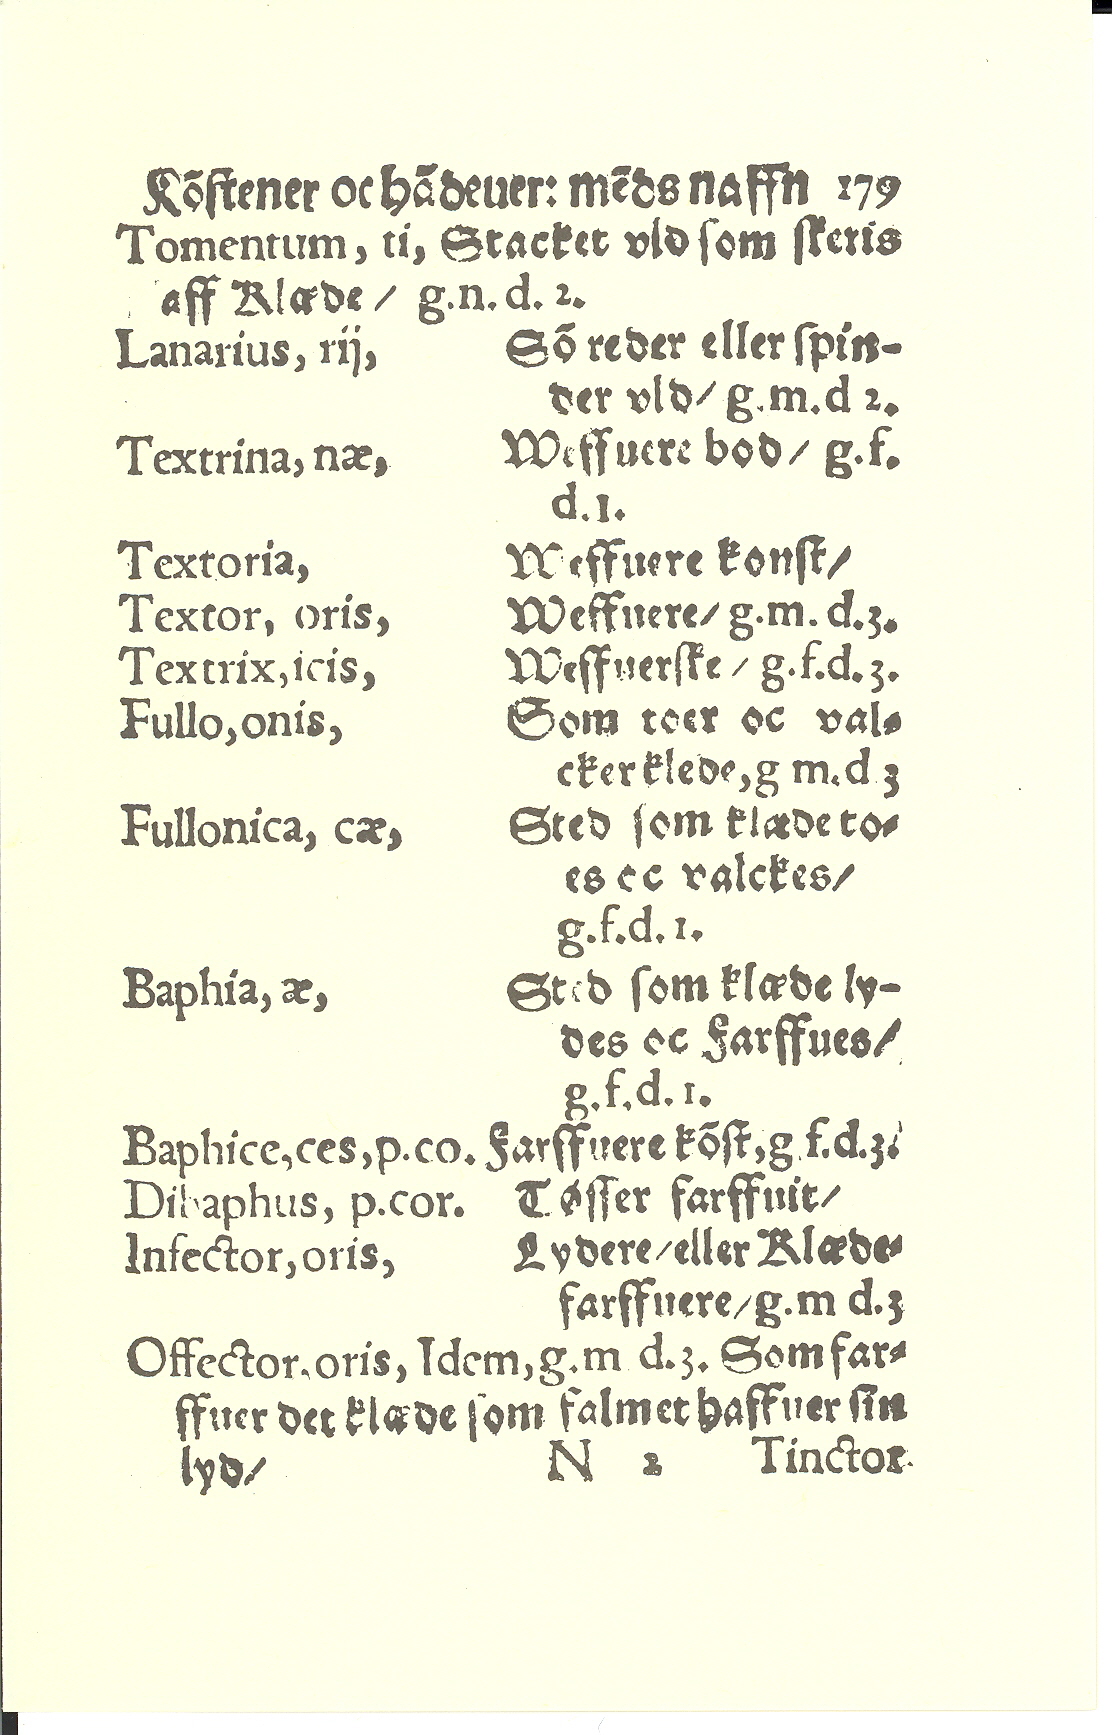 Kõstener oc hãdeuer: mẽds naffn 179
Tomentum, ti, Stacket vld som skeris
aff Klæde / g.n.d. 2.
Lanarius, rij, Sõ reder eller spin-
der vld/ g.m.d 2.
Textrina, næ, Weffuere bod/ g.f.
d.1.
Textoria, Weffuere konst/
Textor, oris, Weffuere/ g.m. d.3.
Textrix, icis, Weffuerske / g.f.d.3.
Fullo, onis, Som toer oc val-
cker klede, g m.d 3
Fullonica, cæ, Sted som klæde to-
es oc valckes/
g.f.d. 1.
Baphia, æ, Sted som klæde ly-
des oc Farffues/
g.f.d. 1.
Baphice, ces, p.co. Farffuere kõst, g f.d.3.
Dibaphus, p.cor. Tøsser farffuit/
Infector, oris, Lydere/eller Klæde-
farffuere/g.m d.3
Offector. oris, Idem, g.m d.3. Som far-
ffuer det klæde som falmet haffuer sin
lyd/ N 2 Tinctor